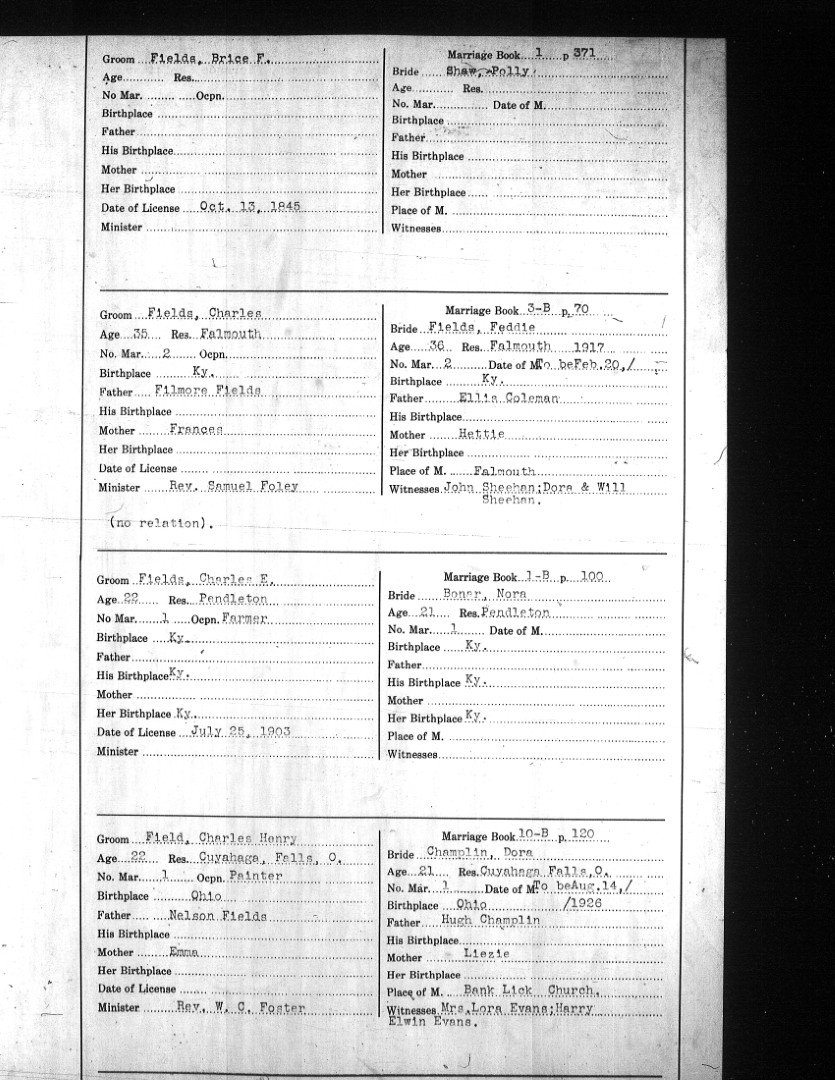 Groom Fields, Brice F.
Age Res.
No Mar. Ocpn.
Birthplace
Father
His Birthplace
Mother
Her Birthplace
Date of License Oct. 13, 1845
Minister
Marriage Book 1 p 371
Bride Shaw, Polly
Age Res.
No. Mar. Date of M.
Birthplace
Father
His Birthplace
Mother
Her Birthplace
Place of M.
Witnesses
Groom Fields, Charles
Age 35 Res. Falmouth
No. Mar. 2 Ocpn.
Birthplace Ky.
Father Filmore Fields
His Birthplace
Mother Frances
Her Birthplace
Date of License
Minister Rev. Samuel Foley
(no relation).
Marriage Book 3-B p. 70
Bride Fields, Feddie
Age 36 Res. Falmouth 1917
No. Mar. 2 Date of M. To be Feb. 20,/
Birthplace Ky.
Father Ellis Coleman
His Birthplace
Mother Hettie
Her Birthplace
Place of M. Falmouth
Witnesses John Sheehan; Dora & Will
Sheehan.
Groom Fields, Charles E.
Age 22 Res. Pendleton
No Mar. 1 Ocpn. Farmer
Birthplace Ky.
Father
His Birthplace Ky.
Mother
Her Birthplace Ky.
Date of License July 25, 1903
Minister
Marriage Book 1-B p. 100
Bride Boner, Nora
Age 21 Res. Pendleton
No. Mar. 1 Date of M.
Birthplace Ky.
Father
His Birthplace Ky.
Mother
Her Birthplace Ky.
Place of M.
Witnesses
Groom Field, Charles Henry
Age 22 Res. Cuyahaga, Falls, O.
No. Mar. 1 Ocpn. Painter
Birthplace Ohio
Father Nelson Fields
His Birthplace
Mother Emma
Her Birthplace
Date of License
Minister Rev. W. C. Foster
Marriage Book 10-B p. 120
Bride Champlin, Dora
Age 21 Res. Cuyahaga Falls, O.
No. Mar. 1 Date of M. To be Aug. 14,/
Birthplace Ohio /1926
Father Hugh Champlin
His Birthplace
Mother Liezie
Her Birthplace
Place of M. Bank Lick Church.
Witnesses Mrs. Lora Evans; Harry
Elwin Evans.